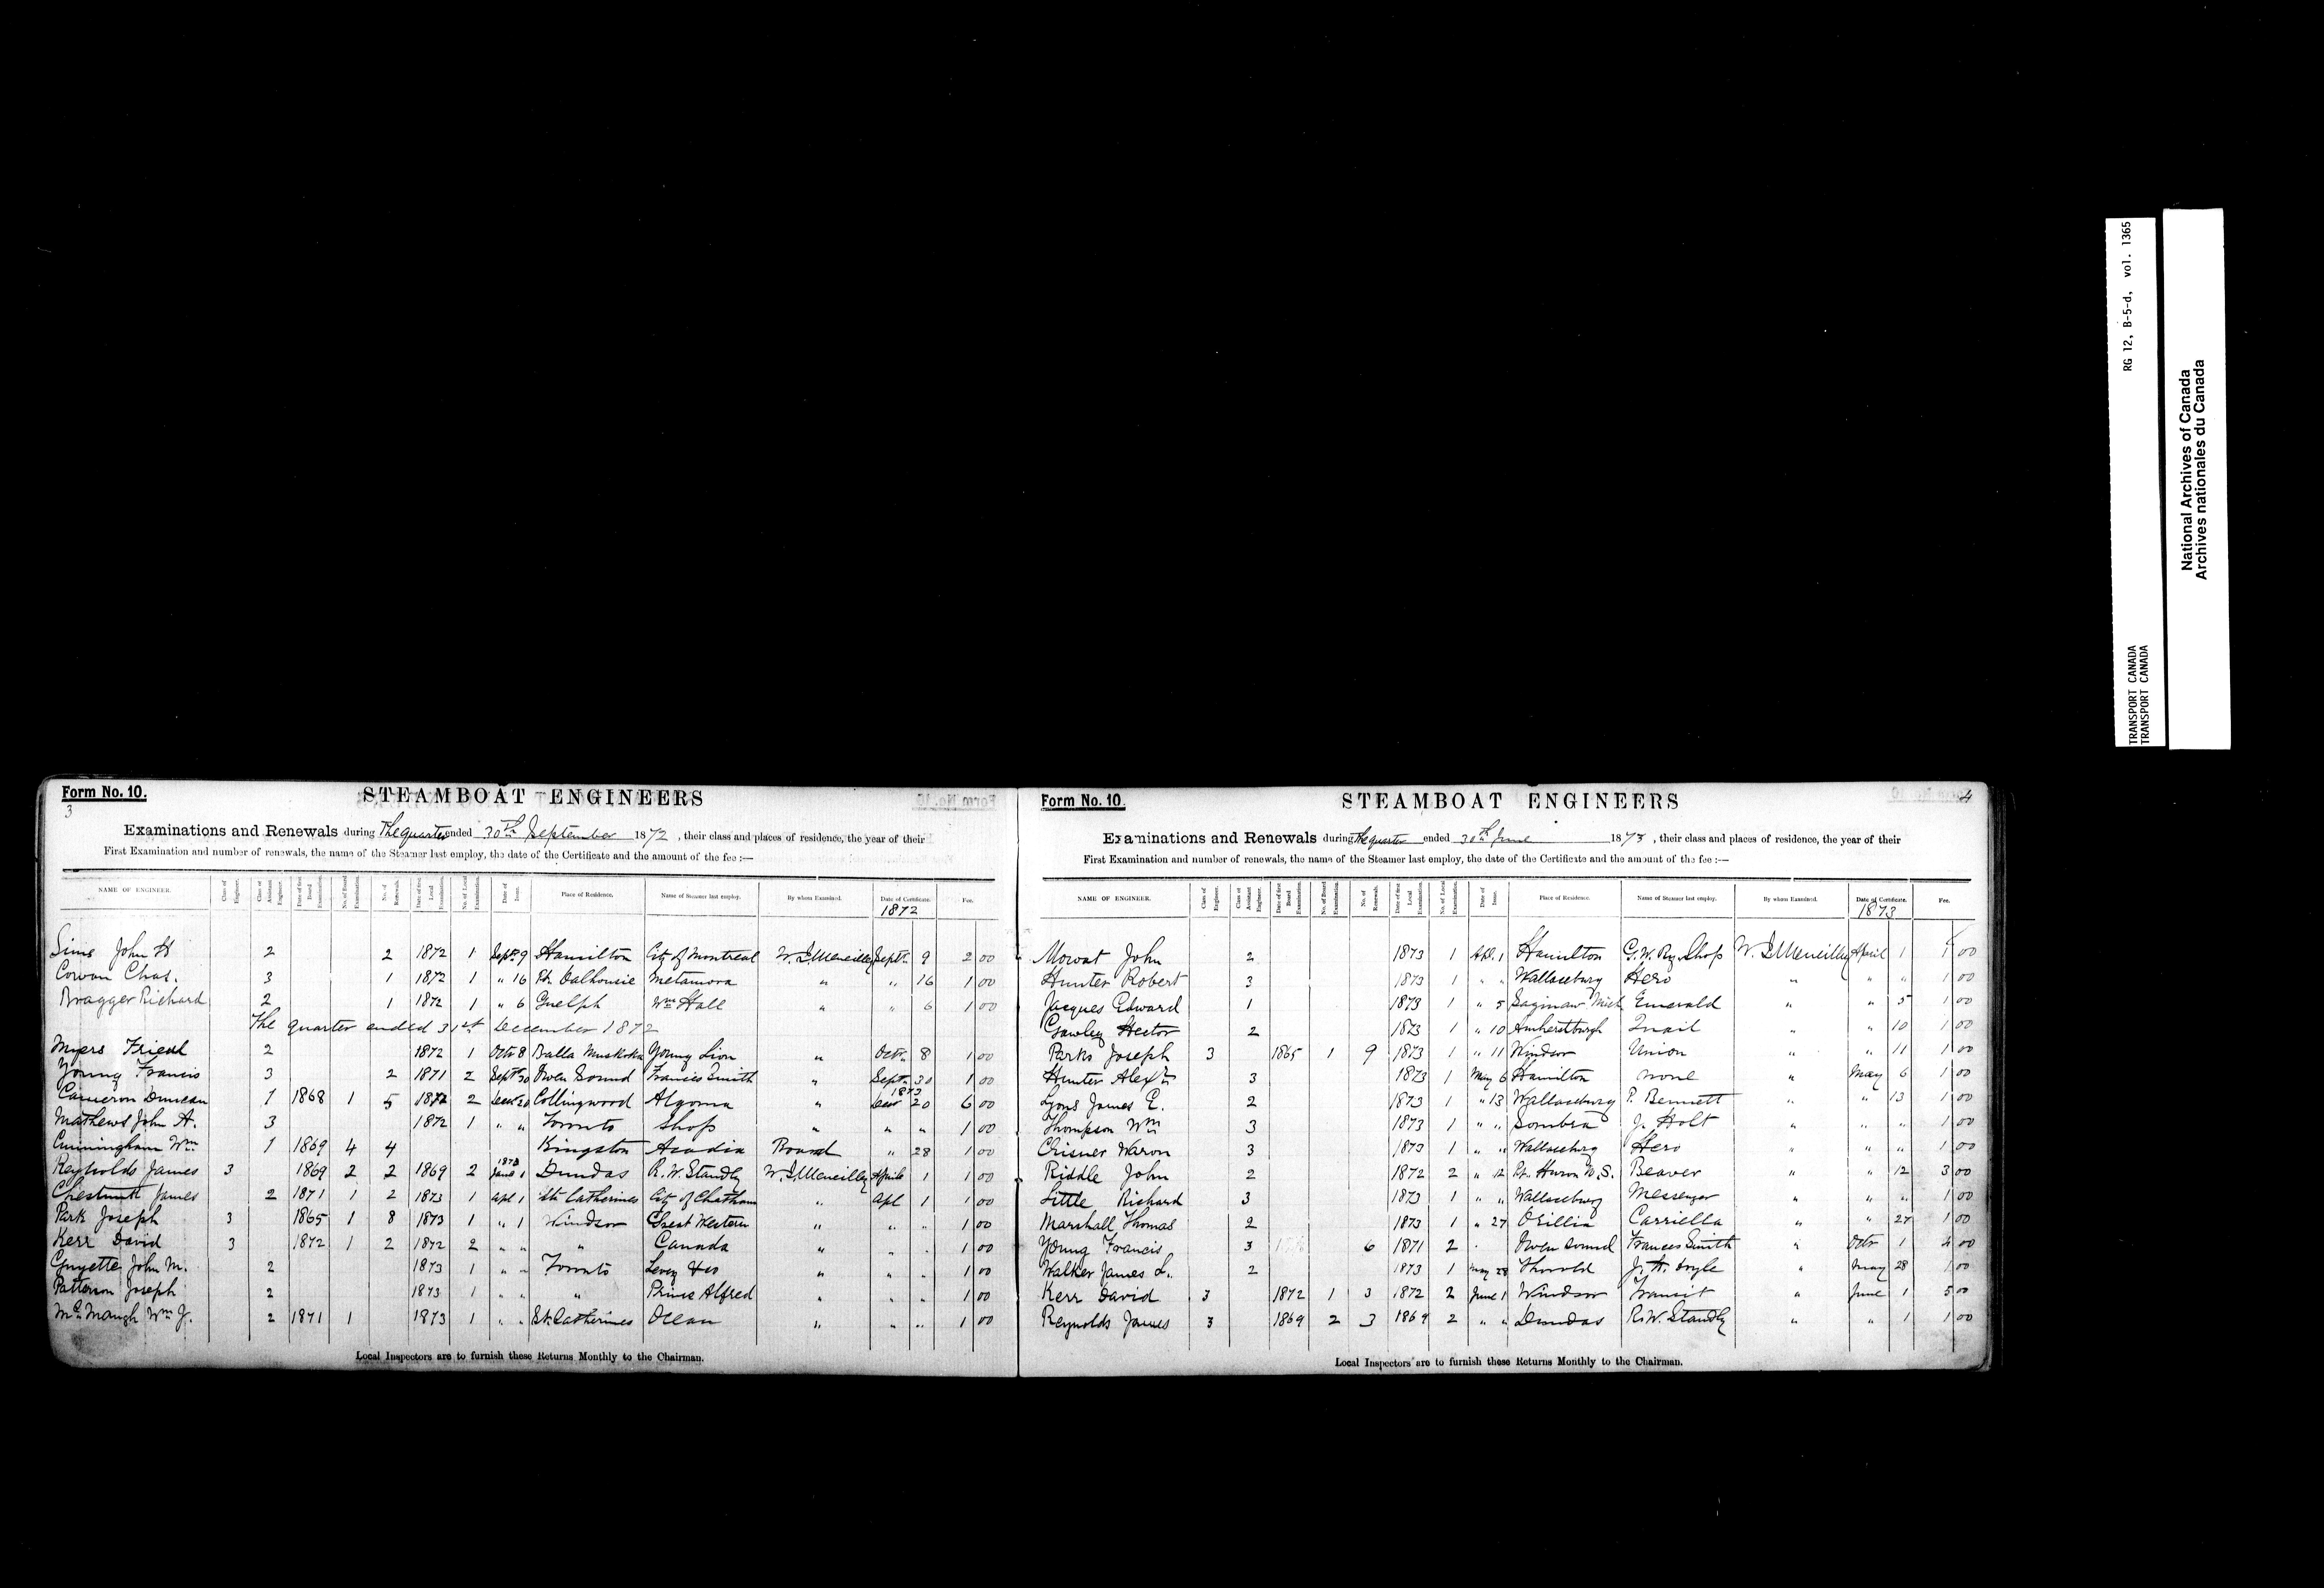 Form No. 10.
3
STEAMBOAT ENGINEERS
Examinations and Renewals during The quarter ended 30th September 1872, their class and places of residence, the year of their
First Examination and number of renewals, the name of the Steamer last employ, the date of the Certificate and the amount of the fee :—
NAME OF ENGINEER. Class of Engineer. Class of Assistant Engineer. Date of first Board Examination. No. of Board Examination. No. of Renewals. Date of first Local Examination. No. of Local Examination. Date of Issue. Place of Residence. Name of Steamer last employ. By whom Examined. Date of Certificate. Fee.
1872
Sims John H 2 2 1872 1 Sept. 9 Hamilton City of Montreal W. J. Meneilley Septr. 9 2 00
Cowan Chas. 3 1 1872 1 " 16 Pt. Dalhousie Metamora " " 16 1 00
Bragger Richard 2 1 1872 1 " 6 Guelph Wm Hall " " 6 1 00
The quarter ended 31st December 1872
Myers Friend 2 1872 1 Octr 8 Balla Muskoka Young Lion " Octr. 8 1 00
Young Francis 3 2 1871 2 Septr 30 Owen Sound Frances Smith " Septr. 30 1 00
1873
Cameron Duncan 1 1868 1 5 1872 2 Decr 20 Collingwood Algoma " Decr 20 6 00
Mathews John A. 3 1872 1 " " Toronto Shop " " " 1 00
Cunningham Wm. 1 1869 4 4 Kingston Acadia Board " 28 1 00
1873
Reynolds James 3 1869 2 2 1869 2 June 1 Dundas R. W. Standly W. J. Meneilley April 1 1 00
Chestnut James 2 1871 1 2 1873 1 Apl 1 St. Catherines City of Chatham " Apl 1 1 00
Park Joseph 3 1865 1 8 1873 1 " 1 Windsor Great Western " " " 1 00
Kerr David 3 1872 1 2 1872 2 " " " Canada " " " 1 00
Guyette John M. 2 1873 1 " " Toronto " " " 1 00
Patterson Joseph 2 1873 1 " " " Prince Alfred " " " 1 00
McMaugh Wm J. 2 1871 1 1873 1 " " St. Catherines Ocean " " " 1 00
Local Inspectors are to furnish these Returns Monthly to the Chairman.
Form No. 10.
4
STEAMBOAT ENGINEERS
Examinations and Renewals during The quarter ended 30th June 1873, their class and places of residence, the year of their
First Examination and number of renewals, the name of the Steamer last employ, the date of the Certificate and the amount of the fee :—
NAME OF ENGINEER. Class of Engineer. Class of Assistant Engineer. Date of first Board Examination. No. of Board Examination. No. of Renewals. Date of first Local Examination. No. of Local Examination. Date of Issue. Place of Residence. Name of Steamer last employ. By whom Examined. Date of Certificate. Fee.
1873
Mowat John 2 1873 1 Apl. 1 Hamilton G. W. Ry. Shop W. J. Meneilley April 1 1 00
Hunter Robert 3 1873 1 " " Wallaceburg Hero " " " 1 00
Jacques Edward 1 1873 1 " 5 Saginaw Mich Emerald " " 5 1 00
Gawley Hector 2 1873 1 " 10 Amherstburgh Quail " " 10 1 00
Parks Joseph 3 1865 1 9 1873 1 " 11 Windsor Union " " 11 1 00
Hunter Alexr. 3 1873 1 May 6 Hamilton none " May 6 1 00
Lyons James E. 2 1873 1 " 13 Wallaceburg P. Bennett " " 13 1 00
Thompson Wm 3 1873 1 " " Sombra J. Holt " " " 1 00
Crisner Waron 3 1873 1 " " Wallaceburg Hero " " " 1 00
Riddle John 2 1872 2 " 12 Pt. Huron U.S. Beaver " " 12 3 00
Little Richard 3 1873 1 " " Wallaceburg Messenger " " " 1 00
Marshall Thomas 2 1873 1 " 27 Orillia Carriella " " 27 1 00
Young Francis 3 6 1871 2 Owen Sound Frances Smith " Octr 1 4 00
Walker James L. 2 1873 1 May 28 Thorold J. H. Doyle " May 28 1 00
Kerr David 3 1872 1 3 1872 2 June 1 Windsor Transit " June 1 5 00
Reynolds James 3 1869 2 3 1869 2 " " Dundas R. W. Standly " " 1 1 00
Local Inspectors are to furnish these Returns Monthly to the Chairman.
TRANSPORT CANADA RG 12, B-5-d, vol. 1365
TRANSPORT CANADA
National Archives of Canada
Archives nationales du Canada